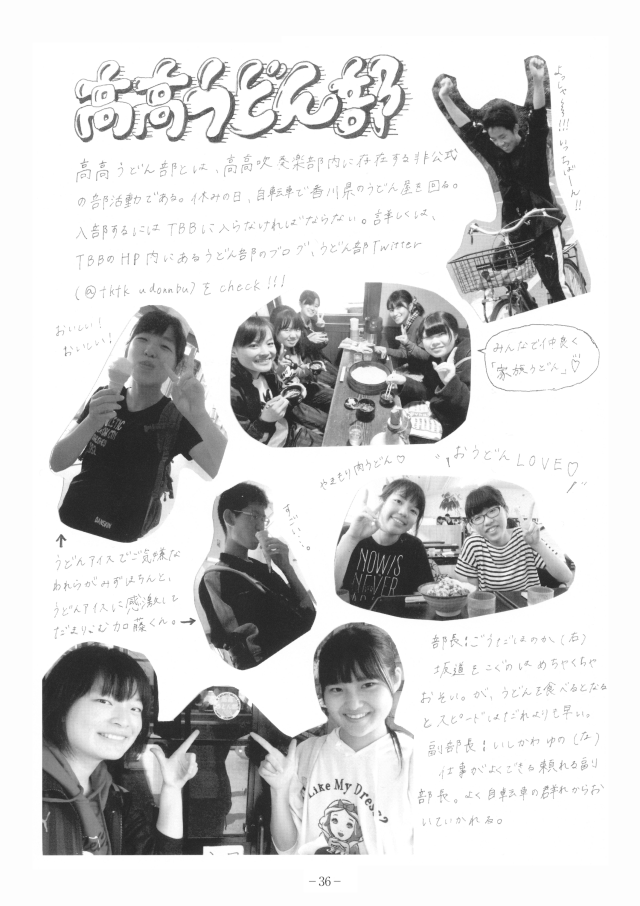 高高うどん部
高高うどん部とは、高高吹奏楽部内に存在する非公式
の部活動である。休みの日、自転車で香川県のうどん屋を回る。
入部するにはTBBに入らなければならない。詳しくは、
TBBのHP内にあるうどん部のブログ、うどん部Twitter
(@tktk udonnbu)をcheck!!!
よっしゃーぁ!!!いっちばーん!!
おいしい!
おいしい!
みんなで仲良く
「家族うどん」♡
やまもり肉うどん♡
"おうどんLOVE♡"
NOW IS
NEVER
うどんアイスでご機嫌な
われらがみずほちんと、
うどんアイスに感激して
だまりこむ加藤くん。→
部長:ごうだほのか(右)
坂道をこぐのはめちゃくちゃ
おそい。が、うどんを食べるとなる
とスピードはだれよりも早い。
副部長:いしかわゆの(左)
仕事がよくできる頼れる副
部長。よく自転車の群れからお
いていかれる。
Like My Dress?
-36-